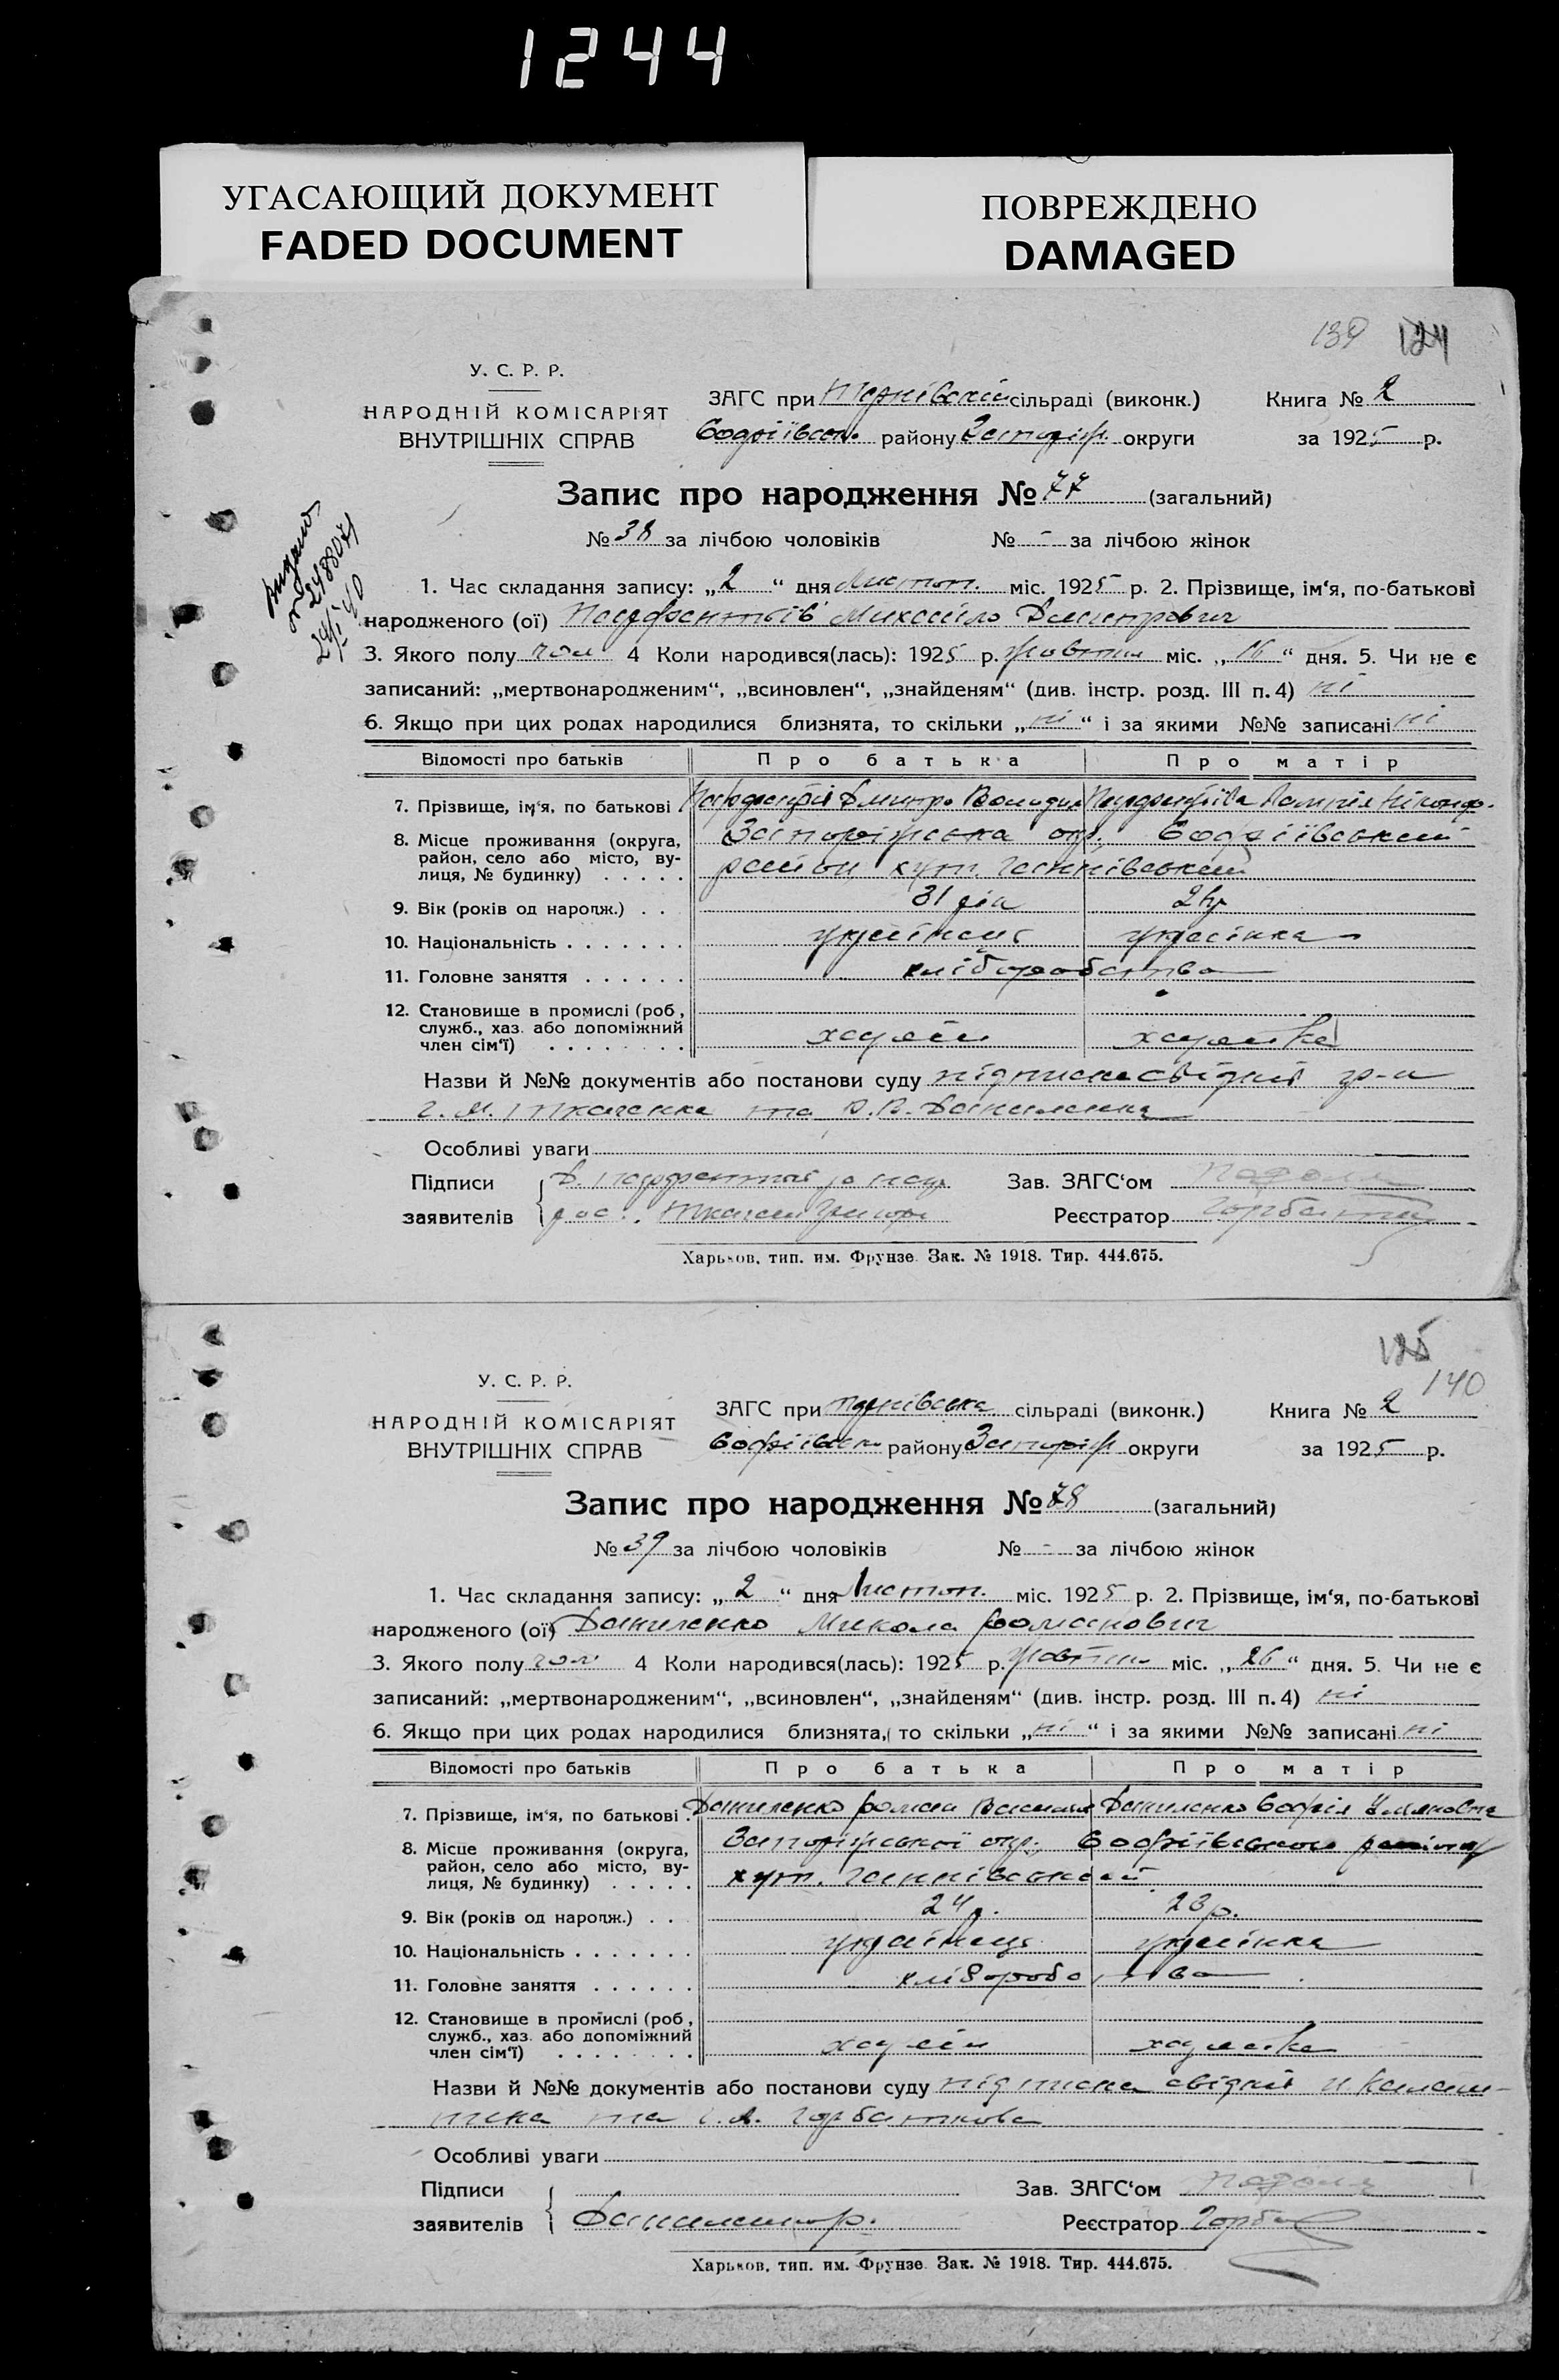 1244
УГАСАЮЩИЙ ДОКУМЕНТ
FADED DOCUMENT
ПОВРЕЖДЕНО
DAMAGED
139 124
У. С. Р. Р.
НАРОДНІЙ КОМІСАРІЯТ
ВНУТРІШНІХ СПРАВ
ЗАГС при Тернівській сільраді (виконк.) Книга № 2
Софіївськ. району Запоріж. округи за 1925 р.
Запис про народження № 77 (загальний)
№ 38 за лічбою чоловіків № - за лічбою жінок
видано
24/I 40
1. Час складання запису: „2“ дня Листоп. міс. 1925 р. 2. Прізвище, ім‘я, по-батькові
народженого (ої) Михайло Дмитрович
3. Якого полу чол 4 Коли народився(лась): 1925 р. жовтня міс. „16“ дня. 5. Чи не є
записаний: „мертвонародженим“, „всиновлен“, „знайденям“ (див. інстр. розд. III п. 4) ні
6. Якщо при цих родах народилися близнята, то скільки „ні“ і за якими №№ записані ні
Відомості про батьків Про батька Про матір
7. Прізвище, ім‘я, по батькові Дмитро Володим
8. Місце проживання (округа, район, село або місто, вулиця, № будинку) Запоріжська окр., Софіївський
район хут. Ганнівський
9. Вік (років од народж.) 31 рік
10. Національність українець українка
11. Головне заняття хліборобство
12. Становище в промислі (роб, служб., хаз. або допоміжний член сім‘ї) хазяїн хазяйка
Назви й №№ документів або постанови суду підписка свідків гр-н
Г. М. Ткаченка та В. Даниленка
Особливі уваги
Підписи
заявителів
Зав. ЗАГС‘ом
Реєстратор Горбатий
Харьков, тип. им. Фрунзе. Зак. № 1918. Тир. 444.675.
125
140
У. С. Р. Р.
НАРОДНІЙ КОМІСАРІЯТ
ВНУТРІШНІХ СПРАВ
ЗАГС при Тернівська сільраді (виконк.) Книга № 2
Софіївськ району Запоріж округи за 1925 р.
Запис про народження № 78 (загальний)
№ 39 за лічбою чоловіків № - за лічбою жінок
1. Час складання запису: „2“ дня Листоп. міс. 1925 р. 2. Прізвище, ім‘я, по-батькові
народженого (ої) Даниленко Микола Романович
3. Якого полу чол 4 Коли народився(лась): 1925 р. жовтня міс. „26“ дня. 5. Чи не є
записаний: „мертвонародженим“, „всиновлен“, „знайденям“ (див. інстр. розд. III п. 4) ні
6. Якщо при цих родах народилися близнята, то скільки „ні“ і за якими №№ записані ні
Відомості про батьків Про батька Про матір
7. Прізвище, ім‘я, по батькові Даниленко Роман Василь Даниленко Софія
8. Місце проживання (округа, район, село або місто, вулиця, № будинку) Запоріжської окр., Софіївського району
хут. Ганнівський
9. Вік (років од народж.) 24 р. 23 р.
10. Національність українець українка
11. Головне заняття хліборобство
12. Становище в промислі (роб, служб., хаз. або допоміжний член сім‘ї) хазяїн хазяйка
Назви й №№ документів або постанови суду підписка свідків
та Горбаткова
Особливі уваги
Підписи
заявителів
Зав. ЗАГС‘ом
Реєстратор
Харьков, тип. им. Фрунзе. Зак. № 1918. Тир. 444.675.